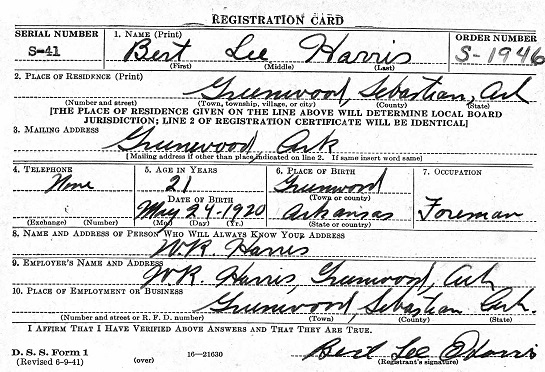 REGISTRATION CARD
SERIAL NUMBER 1. NAME (Print) ORDER NUMBER
S-41 Bert Lee Harris S-1946
(First) (Middle) (Last)
2. PLACE OF RESIDENCE (Print)
Greenwood, Sebastian, Ark
(Number and street) (Town, township, village, or city) (County) (State)
[THE PLACE OF RESIDENCE GIVEN ON THE LINE ABOVE WILL DETERMINE LOCAL BOARD
JURISDICTION; LINE 2 OF REGISTRATION CERTIFICATE WILL BE IDENTICAL]
3. MAILING ADDRESS
Greenwood, Ark
[Mailing address if other than place indicated on line 2. If same insert word same]
4. TELEPHONE 5. AGE IN YEARS 6. PLACE OF BIRTH 7. OCCUPATION
None 21 Greenwood
DATE OF BIRTH (Town or county)
May 24-1920 Arkansas Foreman
(Exchange) (Number) (Mo.) (Day) (Yr.) (State or country)
8. NAME AND ADDRESS OF PERSON WHO WILL ALWAYS KNOW YOUR ADDRESS
W.R. Harris
9. EMPLOYER'S NAME AND ADDRESS
W.R. Harris Greenwood, Ark
10. PLACE OF EMPLOYMENT OR BUSINESS
Greenwood Sebastian Ark.
(Number and street or R. F. D. number) (Town) (County) (State)
I AFFIRM THAT I HAVE VERIFIED ABOVE ANSWERS AND THAT THEY ARE TRUE.
D. S. S. Form 1
(Revised 6-9-41) (over) 16—21630 Bert Lee Harris
(Registrant's signature)